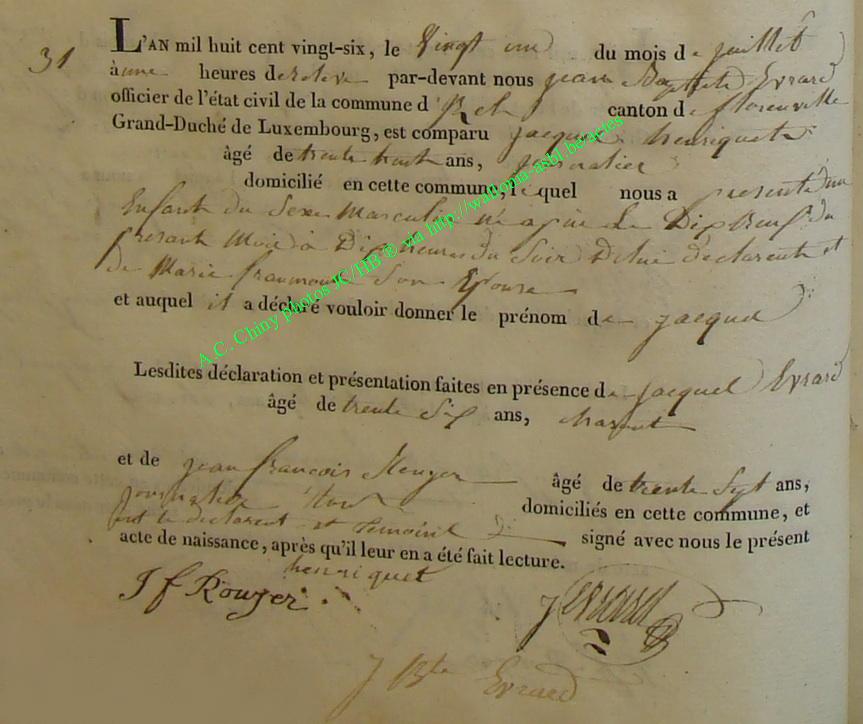 31
L'AN mil huit cent vingt-six, le Vingt un du mois de juillet
à une heures de relevé par-devant nous jean Baptiste Evrard
officier de l'état civil de la commune d' canton de florenville
Grand-Duché de Luxembourg, est comparu jacque henriquet
âgé de trente ans, journalier
domicilié en cette commune, lequel nous a presenté un
Enfant du Sexe Masculin né a Le Dix neuf du
presant Mois à Dix heures du Soir De lui declarent et
de Marie fraumoue Son Epouse
et auquel il a déclaré vouloir donner le prénom de jacque
Lesdites déclaration et présentation faites en présence de jacque Evrard
âgé de trente Six ans,
et de jean francois Rouyer âgé de trente Sept ans,
journalier tous domiciliés en cette commune, et
ont le declarent et temoins signé avec nous le présent
acte de naissance, après qu'il leur en a été fait lecture.
henriquet
J f Rouyer J Evrard
J Bte Evrard
A.C. Chiny photos JC/HB ® via http://wallonia-asbl.be/actes